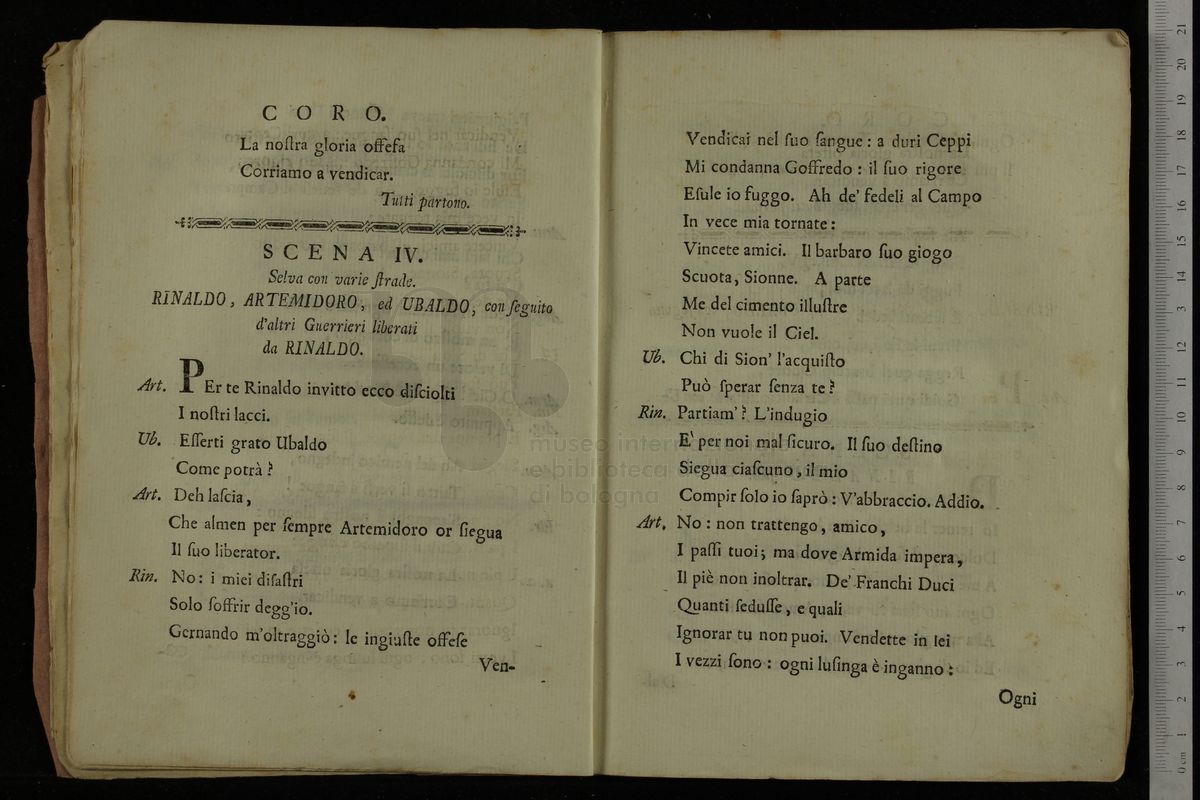 CORO.
La noſtra gloria offeſa
Corriamo a vendicar.
Tutti partono.
SCENA IV.
Selva con varie ſtrade.
RINALDO, ARTEMIDORO, ed UBALDO, con ſeguito
d'altri Guerrieri liberati
da RINALDO.
Art. PEr te Rinaldo invitto ecco diſciolti
I noſtri lacci.
Ub. Eſſerti grato Ubaldo
Come potrà?
Art. Deh laſcia,
Che almen per ſempre Artemidoro or ſiegua
Il ſuo liberator.
Rin. No: i miei diſaſtri
Solo ſoffrir degg'io.
Gernando m'oltraggiò: le ingiuſte offeſe
Ven-
Vendicai nel ſuo ſangue: a duri Ceppi
Mi condanna Goffredo: il ſuo rigore
Eſule io fuggo. Ah de' fedeli al Campo
In vece mia tornate:
Vincete amici. Il barbaro ſuo giogo
Scuota, Sionne. A parte
Me del cimento illuſtre
Non vuole il Ciel.
Ub. Chi di Sion' l'acquiſto
Può ſperar ſenza te?
Rin. Partiam'? L'indugio
E' per noi mal ſicuro. Il ſuo deſtino
Siegua ciaſcuno, il mio
Compir ſolo io ſaprò: V'abbraccio. Addio.
Art. No: non trattengo, amico,
I paſſi tuoi; ma dove Armida impera,
Il piè non inoltrar. De' Franchi Duci
Quanti ſeduſſe, e quali
Ignorar tu non puoi. Vendette in lei
I vezzi ſono: ogni luſinga è inganno:
Ogni
museo
e biblioteca
di bologna
0 cm 1 2 3 4 5 6 7 8 9 10 11 12 13 14 15 16 17 18 19 20 21